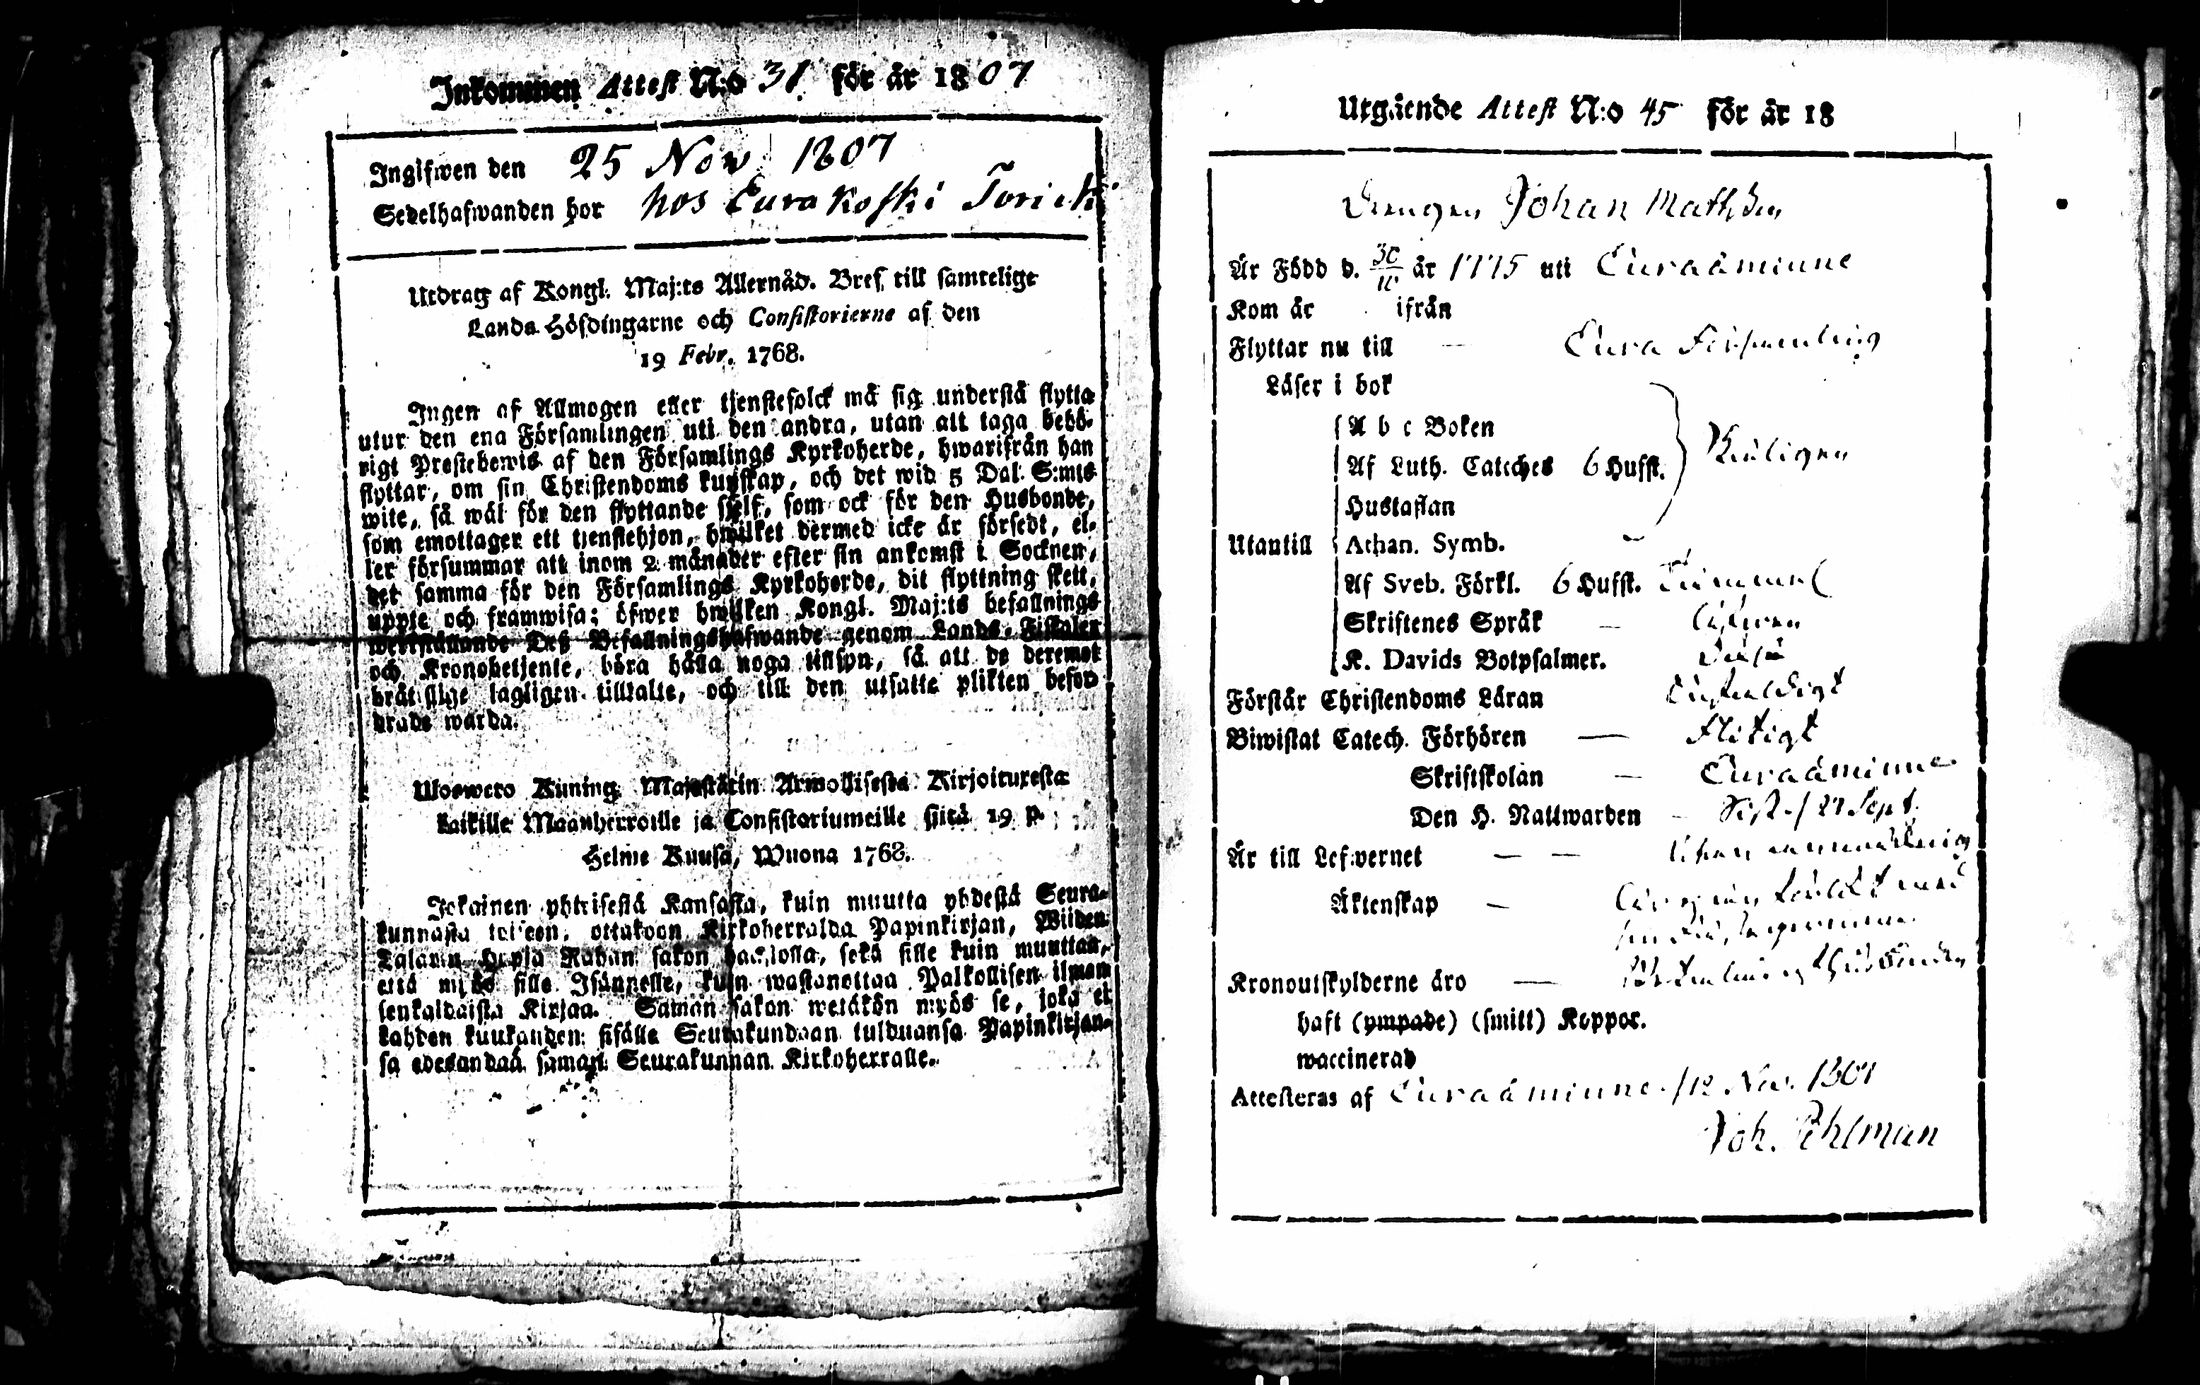 Inkommen Attest N:o 31 för år 1807
Ingifwen den 25 Nov 1807
Sedelhafwanden hor hos Eurakoski
Utdrag af Kongl. Maj:ts Allernåd. Bref till samtelige
Lands-Höfdingarne och Consistorierne af den
19 Febr. 1768.
Ingen af Allmogen eller tjenstefolck må sig understå flytta
utur den ena Församlingen uti den andra, utan att taga behö-
rigt Prestebewis af den Församlings Kyrkoherde, hwarifrån han
flyttar, om sin Christendoms kunskap, och det wid 5 Dal. S:mts
wite, så wäl för den flyttande sjelf, som ock för den Husbonde,
som emottager ett tjenstehjon, hwilket dermed icke är försedt, el-
ler försummar att inom 2 månader efter sin ankomst i Socknen,
det samma för den Församlings Kyrkoherde, dit flyttning skett,
uppte och framwisa; öfwer hwilken Kongl. Maj:ts befallnings
werkställande Deß Befallningshafwande genom Lands-Fiskaler
och Kronobetjente, böra hålla noga tillsyn, så att de deremot
bråtslige lagligen tilltalte, och till den utsatte plikten befor-
drade warda.
Uloswero Kuning. Majestätin Armollisesta Kirjoituxesta
kaikille Maanherroille ja Consistoriumeille siitä 19 p.
Helme Kuusa, Wuona 1768.
Jokainen yhteisestä Kansasta, kuin muutta yhdestä Seura-
kunnasta toiseen, ottakoon Kirkoherralda Papinkirjan, Wiiden
Talarin Hopia Rahan sakon haastolla, sekä sille kuin muuttaa,
että myös sille Isännelle, kuin wastanottaa Palkollisen ilman
senkaldaista Kirjaa. Saman sakon wetäkön myös se, joka ei
kahden kuukauden sisälle Seurakundaan tulduansa Papinkirjan-
sa edesandaa saman Seurakunnan Kirkoherralle.
Utgående Attest N:o 45 för år 18
Drengen Johan Matthsson
Är Född d. 30/11 år 1775 uti Euraåminne
Kom år ifrån
Flyttar nu till — Eura Församling
Läser i bok
A b c Boken
Af Luth. Cateches 6 Hufst.
Hustaflan
Utantill Athan. Symb.
Af Sveb. Förkl. 6 Hufst.
Skriftenes Språk —
K. Davids Botpsalmer.
Förstår Christendoms Läran enfaldigt
Biwistat Catech. Förhören — flitigt
Skriftskolan — Euraåminne
Den H. Nattwarden — sist. / 27 Sept.
Är till Lefwernet — — utan anmärkning
Äktenskap —
Kronoutskylderne äro —
haft (ympade) (smitt) Koppor.
waccinerad
Attesteras af Euraåminne /12 Nov. 1807
Joh. Pihlman